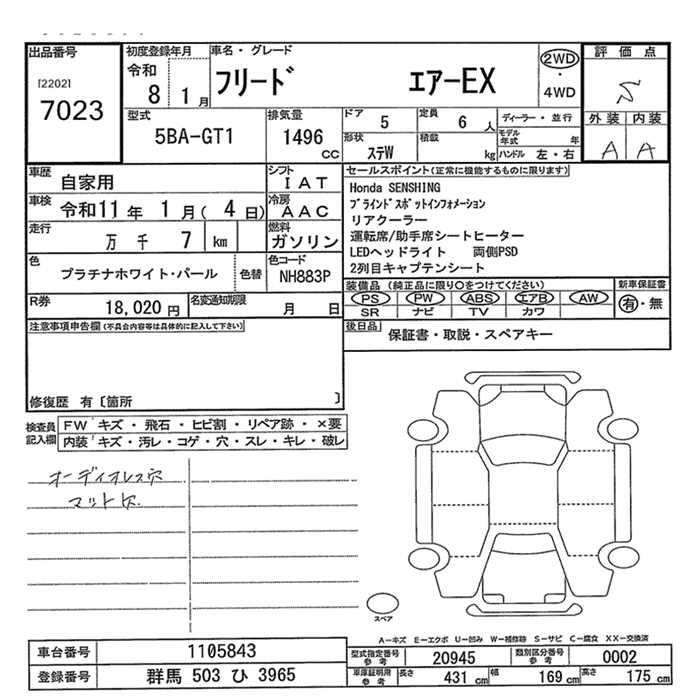 出品番号 初度登録年月 車名・グレード 評価点
[2202] 令和 フリード エアーEX 2WD・4WD S
7023 8 1月
外装 内装
型式 排気量 ドア 5 定員 6人 ディーラー・並行 A A
5BA-GT1 1496 CC 形状 ステW 積載 kg モデル年式 年
ハンドル 左・右
車歴 自家用 シフト IAT セールスポイント(正常に機能するものに限ります)
車検 令和11年 1月(4日) 冷房 AAC Honda SENSHING
ブラインドスポットインフォメーション
走行 万千7 km 燃料 ガソリン リアクーラー
運転席/助手席シートヒーター
色 プラチナホワイト・パール 色替 色コード NH883P LEDヘッドライト 両側PSD
2列目キャプテンシート
R券 18,020円 名変通知期限 月 日 装備品(純正品に限り○をつけてください) 新車保証書
PS PW ABS エアB AW 有・無
SR ナビ TV カワ
注意事項申告欄(不具合内容等は具体的に記入して下さい) 後日品 保証書・取説・スペアキー
修復歴 有〔箇所 〕
検査員記入欄 FW キズ・飛石・ヒビ割・リペア跡・×要
内装 キズ・汚レ・コゲ・穴・スレ・キレ・破レ
オーディオレス穴
マット穴
スペア
A―キズ E―エクボ U―凹み W―補修跡 S―サビ C―腐食 XX―交換済
車台番号 1105843 型式指定番号参考 20945 類別区分番号参考 0002
登録番号 群馬 503 ひ 3965 車庫証明用参考 長さ 431 cm 幅 169 cm 高さ 175 cm